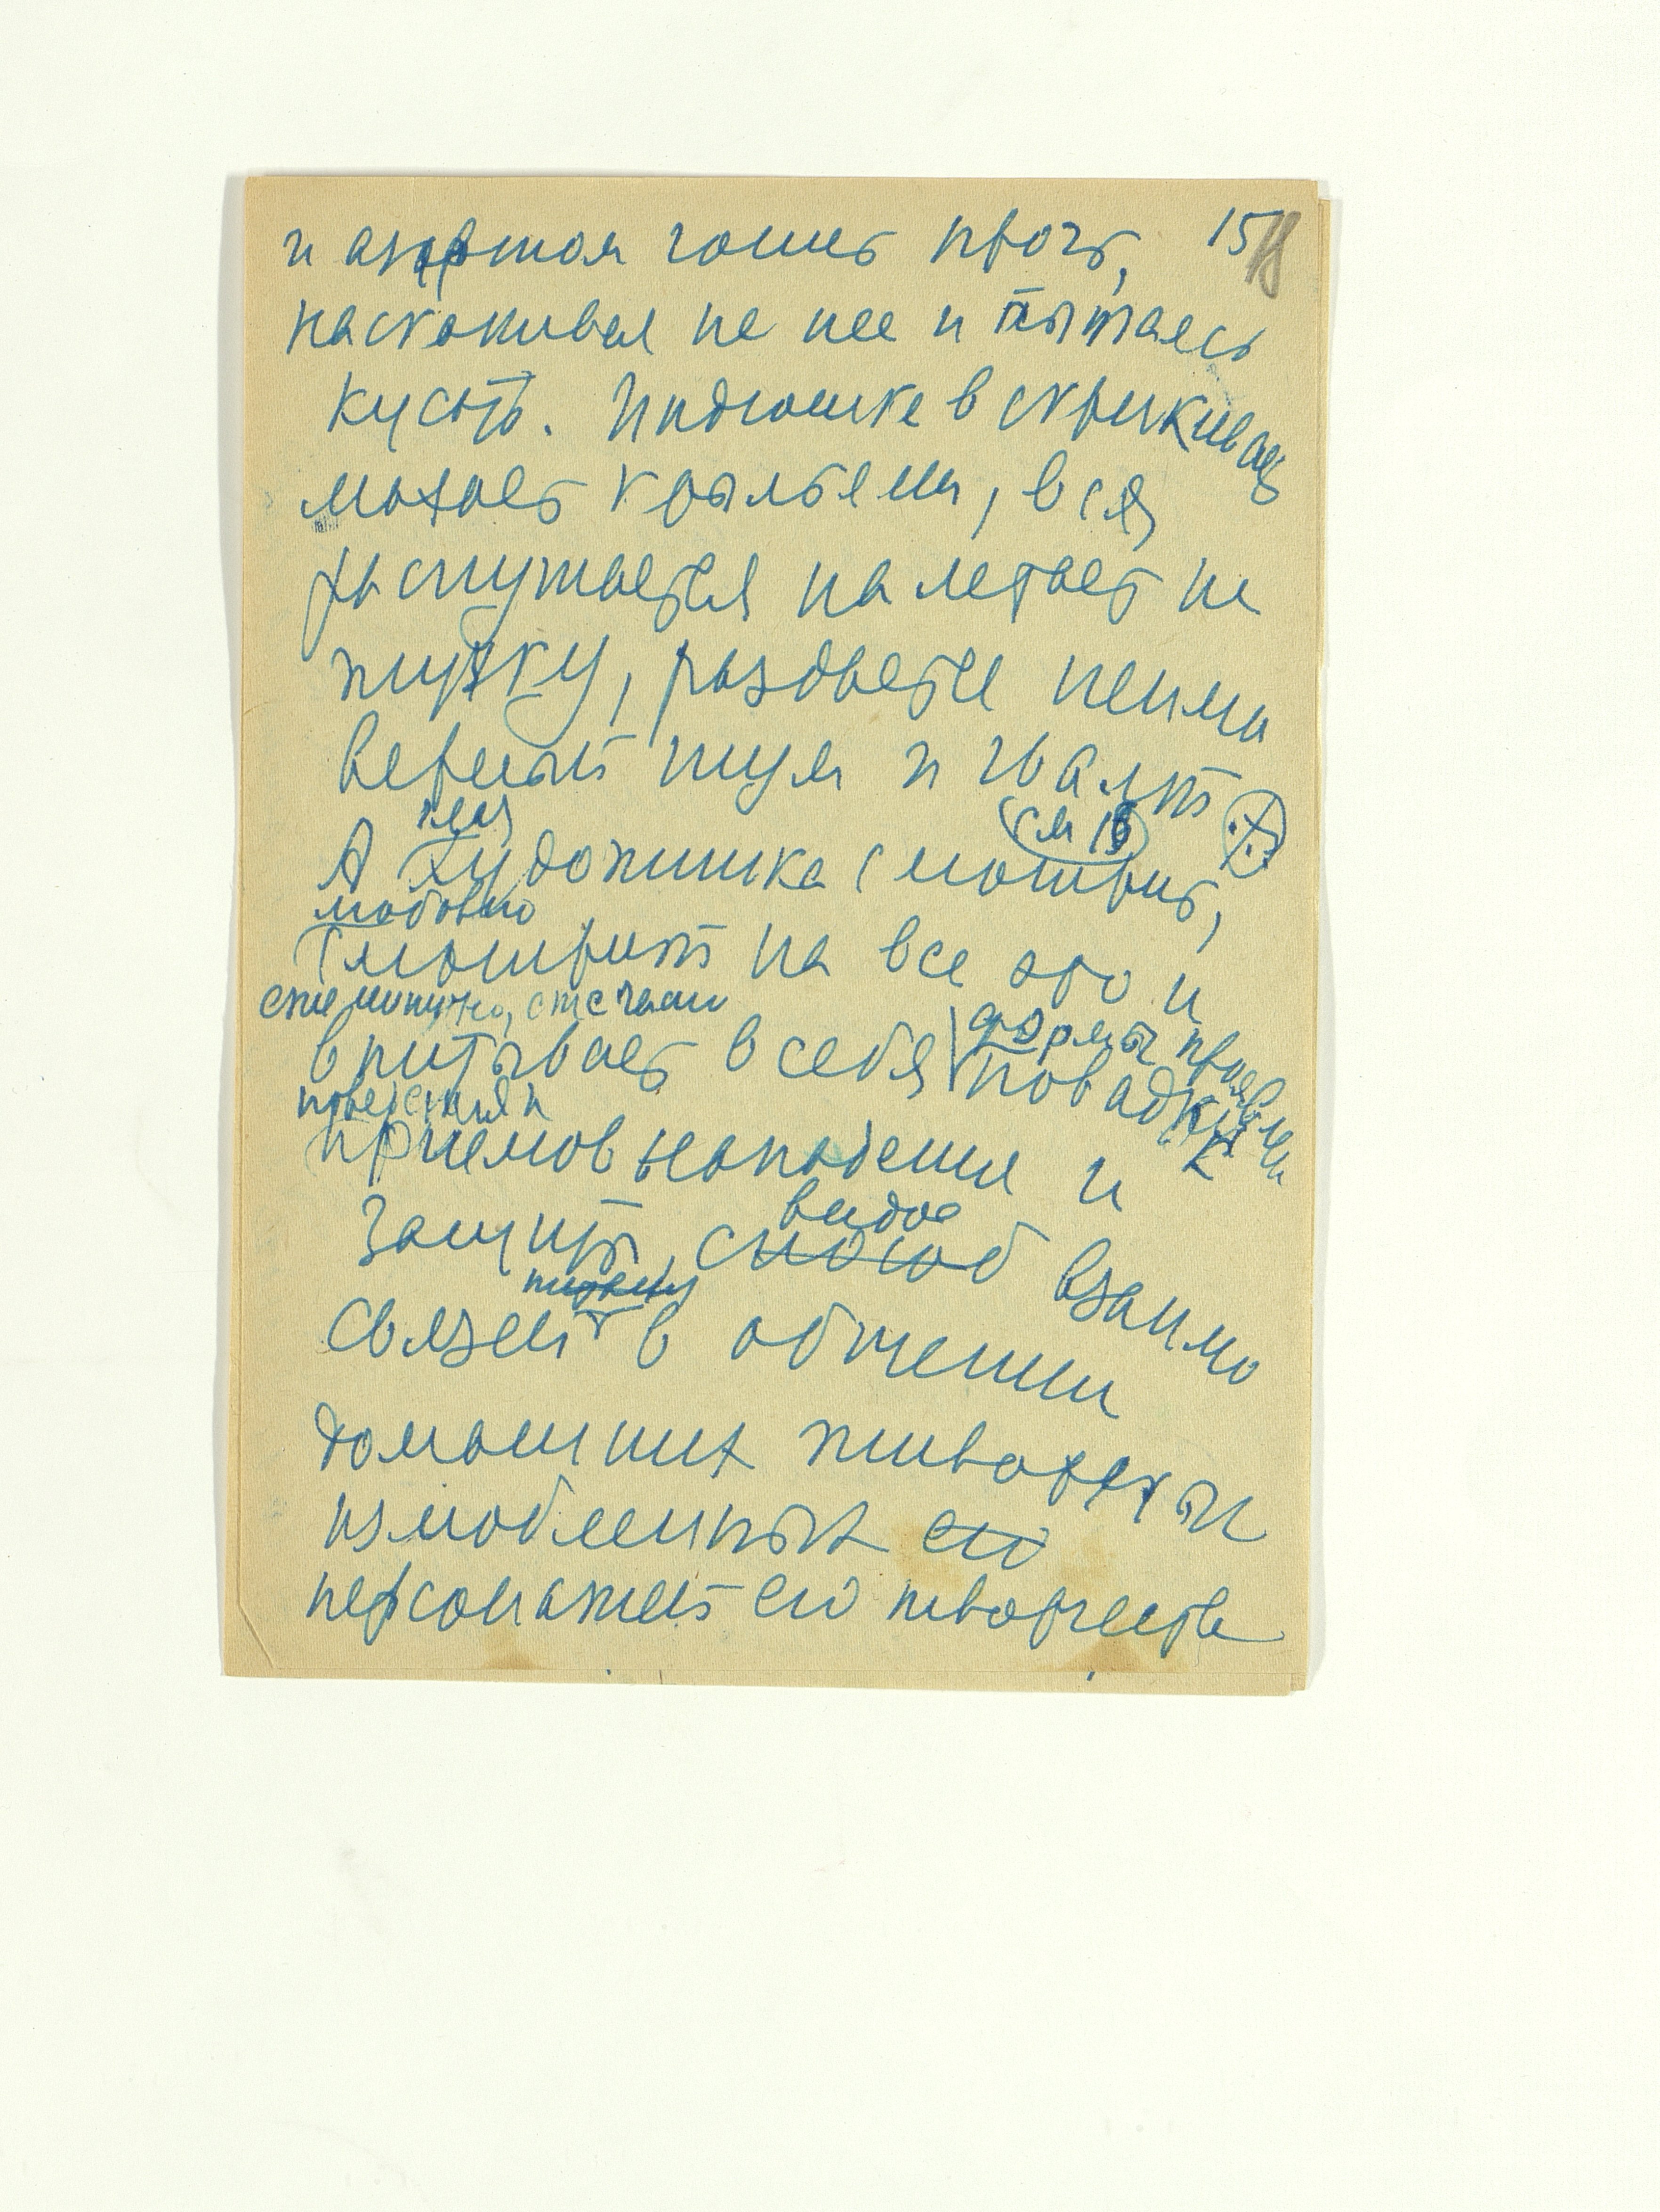 и азартом гонит прочь, 15
18
наскакивая на нее и пытаясь
кусать. Индюшка вскрикивая,
махает крыльями, вся
распушается налетает на
раздается неима
верный шум и гвалт
(см 15)
А художника смотрит,
любовно
смотрит на все это и
ежеминутно,
впитывает в себя повадки
формы проявлен
приемов нападения и
видов
защиты, способ взаимо
связей в общении
домашних животных и
излюбленных его
персонажей его творчества